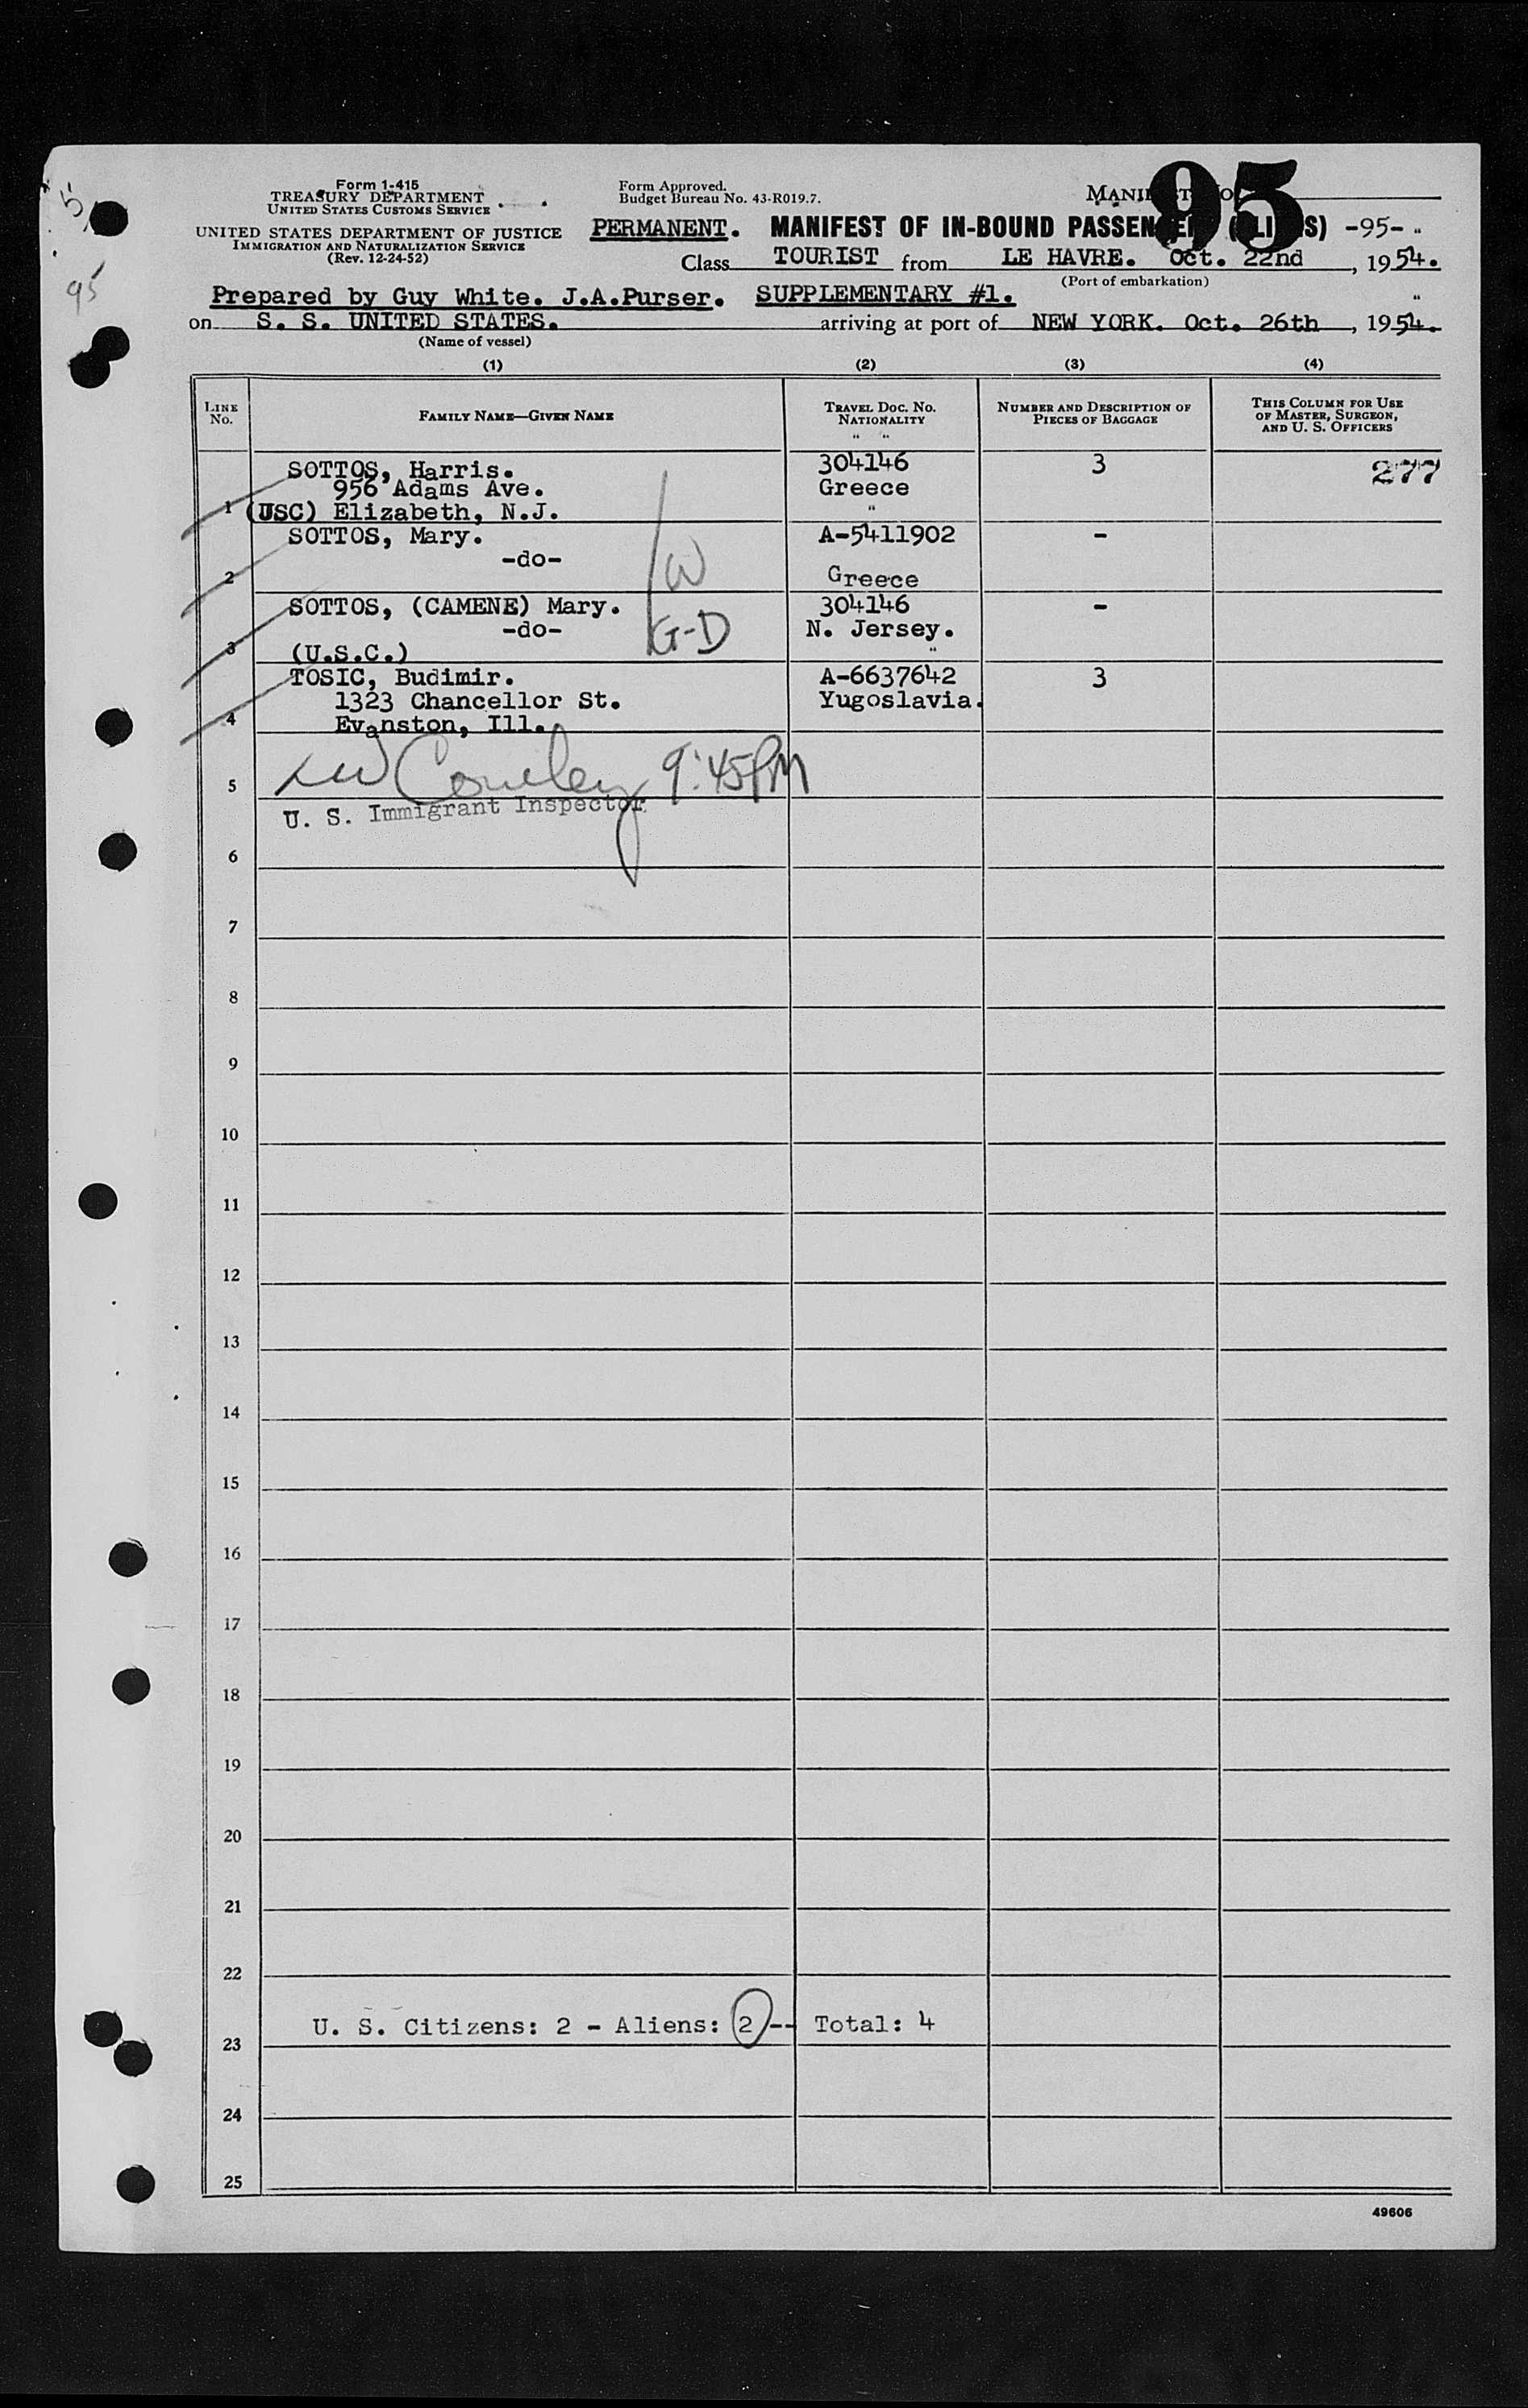 5
95
Form 1-415
TREASURY DEPARTMENT
UNITED STATES CUSTOMS SERVICE
UNITED STATES DEPARTMENT OF JUSTICE
IMMIGRATION AND NATURALIZATION SERVICE
(Rev. 12-24-52)
Form Approved.
Budget Bureau No. 43-R019.7.
95
PERMANENT. MANIFEST OF IN-BOUND (S) -95-
Class TOURIST from LE HAVRE. Oct. 22nd, 1954.
(Port of embarkation)
Prepared by Guy White. J.A.Purser. SUPPLEMENTARY #1.
on S. S. UNITED STATES. arriving at port of NEW YORK. Oct. 26th, 1954.
(Name of vessel)
(1) (2) (3) (4)
LINE No. FAMILY NAME—GIVEN NAME TRAVEL DOC. NO. NATIONALITY NUMBER AND DESCRIPTION OF PIECES OF BAGGAGE THIS COLUMN FOR USE OF MASTER, SURGEON, AND U. S. OFFICERS
SOTTOS, Harris. 304146 3 277
956 Adams Ave. Greece
1 (USC) Elizabeth, N.J. "
SOTTOS, Mary. A-5411902 -
-do- W
2 Greece
SOTTOS, (CAMENE) Mary. 304146 -
-do- G-D N. Jersey.
3 (U.S.C.) "
TOSIC, Budimir. A-6637642 3
1323 Chancellor St. Yugoslavia.
4 Evanston, Ill.
5 9:45PM
U. S. Immigrant Inspector
6
7
8
9
10
11
12
13
14
15
16
17
18
19
20
21
22
U. S. Citizens: 2 - Aliens: 2 -- Total: 4
23
24
25
49606